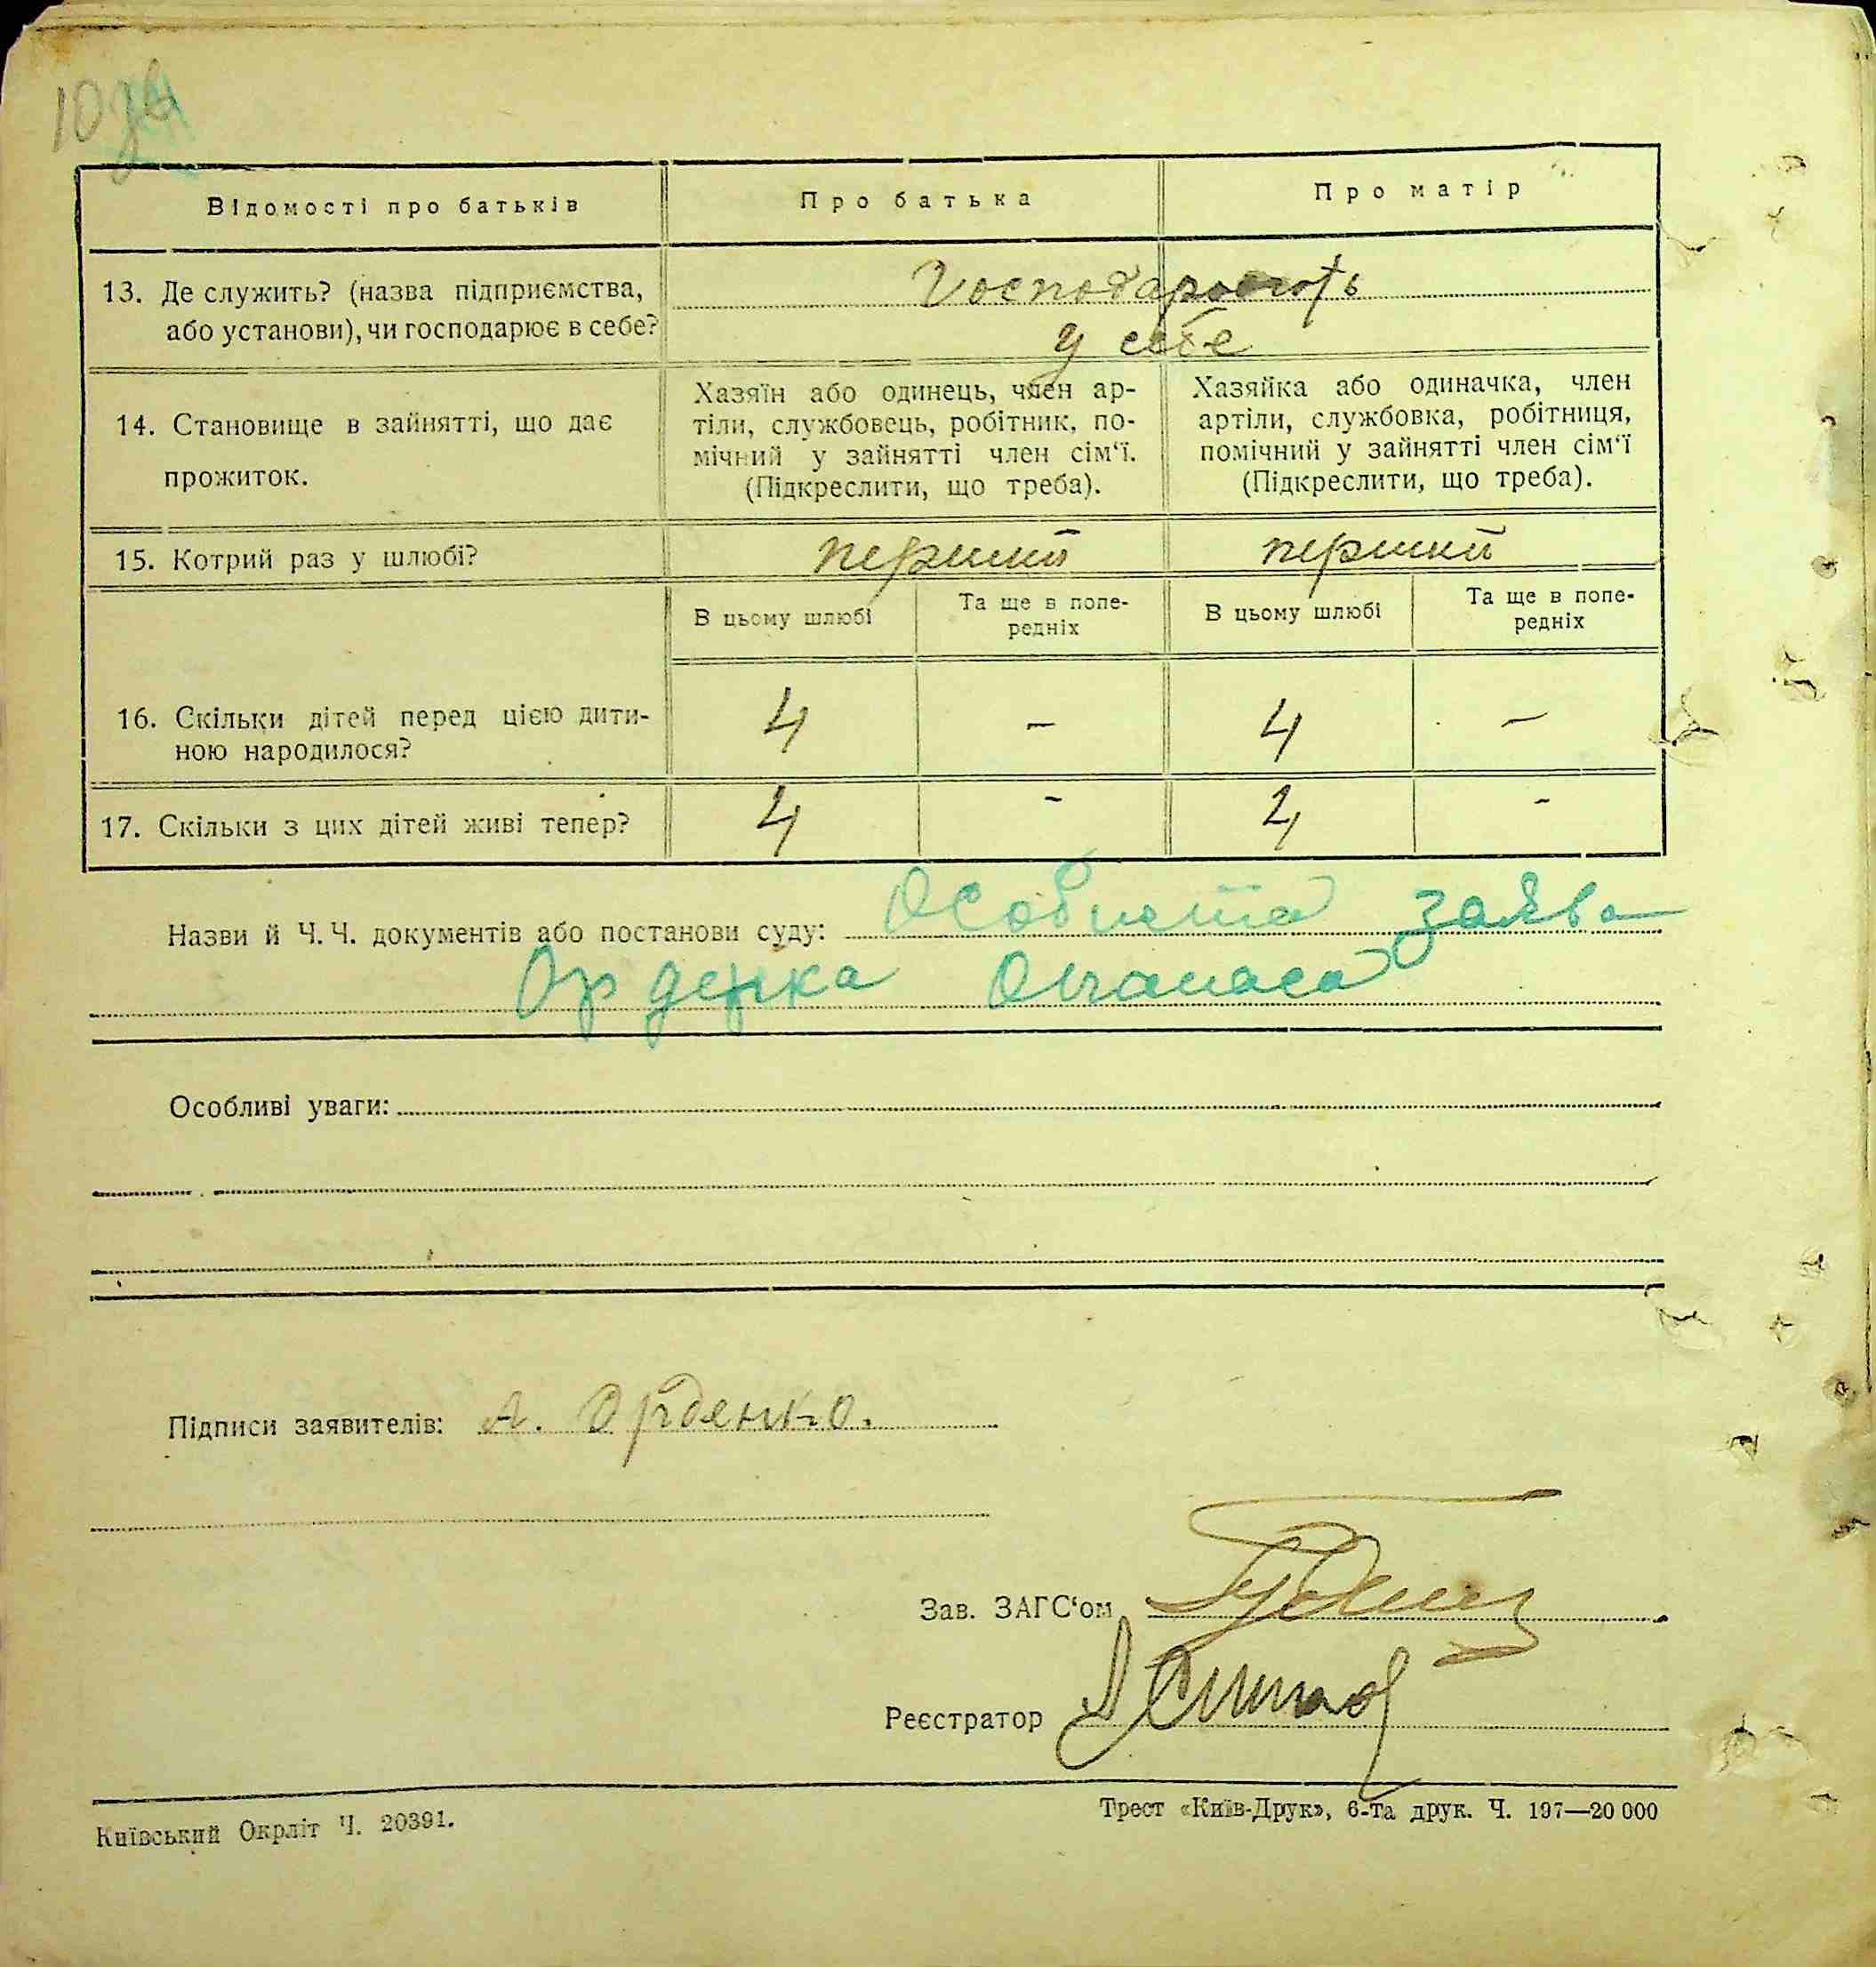 10 зв
Відомості про батьків
Про батька
Про матір
13. Де служить? (назва підприємства,
або установи), чи господарює в себе?
Господарюють
у себе
14. Становище в зайнятті, що дає
прожиток.
Хазяїн або одинець, член ар-
тіли, службовець, робітник, по-
мічний у зайнятті член сім‘ї.
(Підкреслити, що треба).
Хазяйка або одиначка, член
артіли, службовка, робітниця,
помічний у зайнятті член сім‘ї
(Підкреслити, що треба).
15. Котрий раз у шлюбі?
перший
перший
В цьому шлюбі
Та ще в попе-
редніх
В цьому шлюбі
Та ще в попе-
редніх
16. Скільки дітей перед цією дити-
ною народилося?
4
–
4
–
17. Скільки з цих дітей живі тепер?
4
-
4
-
Назви й Ч. Ч. документів або постанови суду: Особиста заява
Орденка Опанаса
Особливі уваги:
Підписи заявителів: А. Орденко.
Зав. ЗАГС‘ом
Реєстратор
Київський Окрліт Ч. 20391.
Трест «Київ-Друк», 6-та друк. Ч. 197—20 000